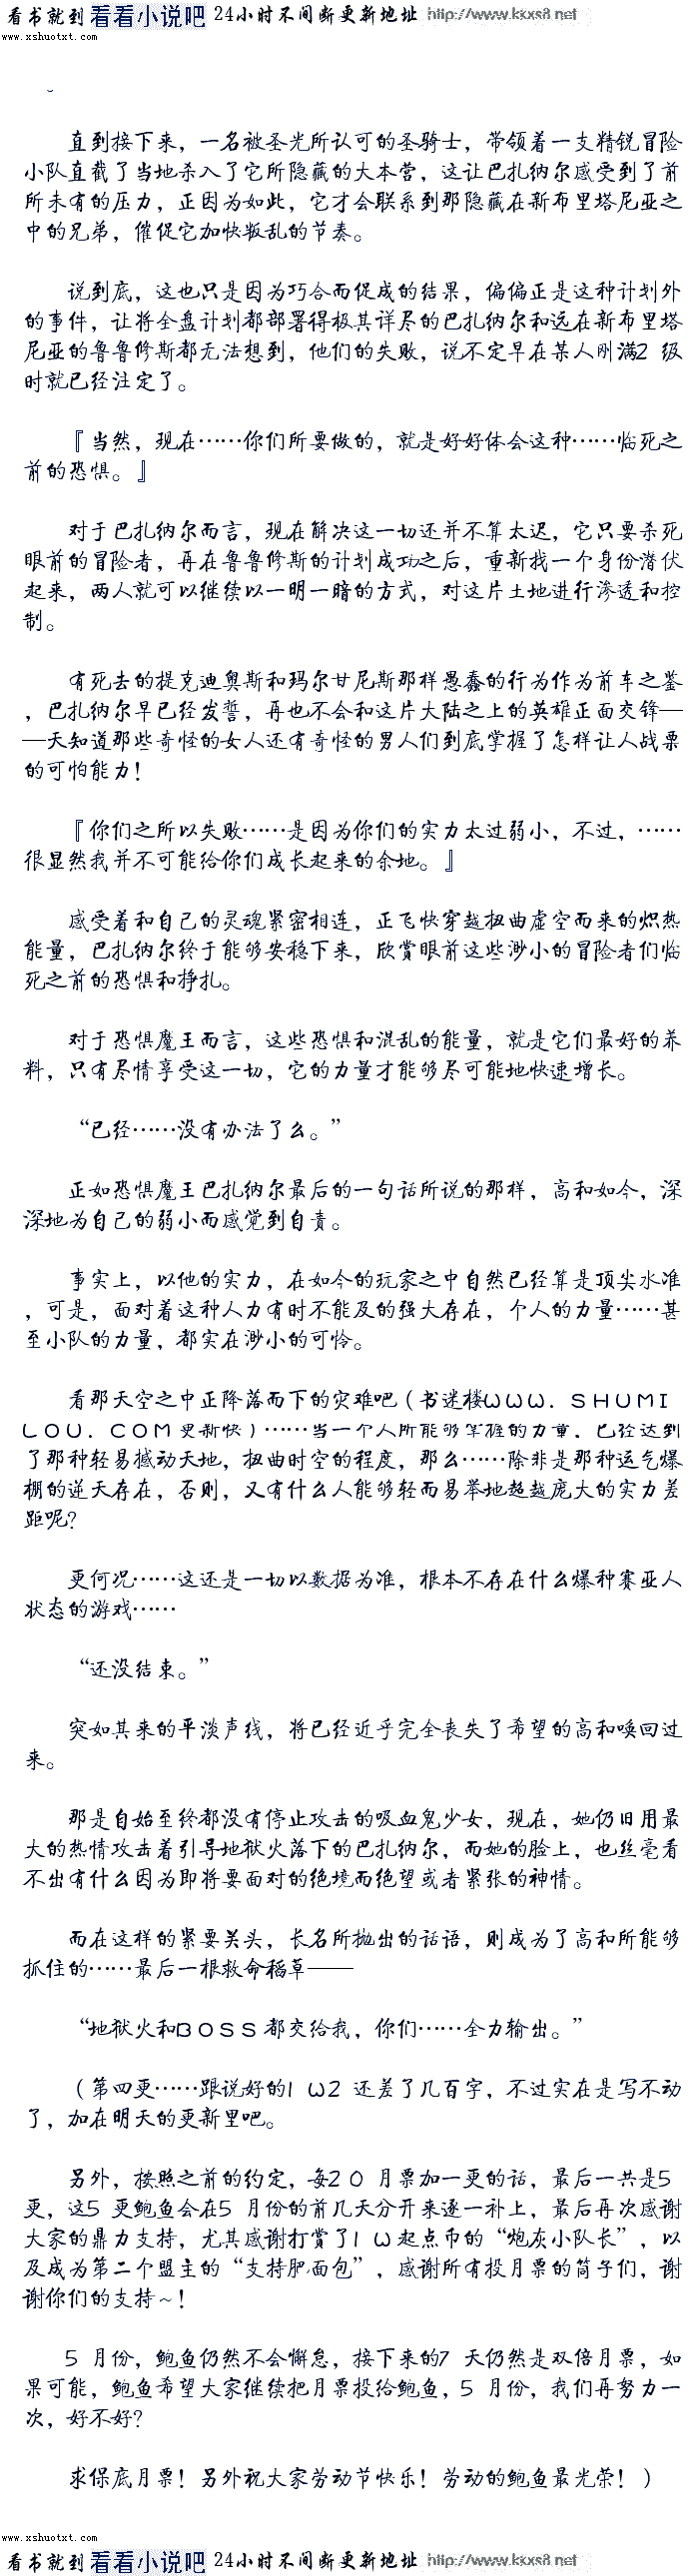 看书就到 看看小说吧 24小时不间断更新地址 http://www.kkxs8.net
www.xshuotxt.com
直到接下来，一名被圣光所认可的圣骑士，带领着一支精锐冒险
小队直截了当地杀入了它所隐藏的大本营，这让巴扎纳尔感受到了前
所未有的压力，正因为如此，它才会联系到那隐藏在新布里塔尼亚之
中的兄弟，催促它加快叛乱的节奏。
说到底，这也只是因为巧合而促成的结果，偏偏正是这种计划外
的事件，让将全盘计划都部署得极其详尽的巴扎纳尔和远在新布里塔
尼亚的鲁鲁修斯都无法想到，他们的失败，说不定早在某人刚满2 级
时就已经注定了。
『当然，现在……你们所要做的，就是好好体会这种……临死之
前的恐惧。』
对于巴扎纳尔而言，现在解决这一切还并不算太迟，它只要杀死
眼前的冒险者，再在鲁鲁修斯的计划成功之后，重新找一个身份潜伏
起来，两人就可以继续以一明一暗的方式，对这片土地进行渗透和控
制。
有死去的提克迪奥斯和玛尔甘尼斯那样愚蠢的行为作为前车之鉴
，巴扎纳尔早已经发誓，再也不会和这片大陆之上的英雄正面交锋—
—天知道那些奇怪的女人还有奇怪的男人们到底掌握了怎样让人战栗
的可怕能力！
『你们之所以失败……是因为你们的实力太过弱小，不过，……
很显然我并不可能给你们成长起来的余地。』
感受着和自己的灵魂紧密相连，正飞快穿越扭曲虚空而来的炽热
能量，巴扎纳尔终于能够安稳下来，欣赏眼前这些渺小的冒险者们临
死之前的恐惧和挣扎。
对于恐惧魔王而言，这些恐惧和混乱的能量，就是它们最好的养
料，只有尽情享受这一切，它的力量才能够尽可能地快速增长。
“已经……没有办法了么。”
正如恐惧魔王巴扎纳尔最后的一句话所说的那样，高和如今，深
深地为自己的弱小而感觉到自责。
事实上，以他的实力，在如今的玩家之中自然已经算是顶尖水准
，可是，面对着这种人力有时不能及的强大存在，个人的力量……甚
至小队的力量，都实在渺小的可怜。
看那天空之中正降落而下的灾难吧（书迷楼WWW．SHUMI
LOU．COM更新快）……当一个人所能够掌握的力量，已经达到
了那种轻易撼动天地，扭曲时空的程度，那么……除非是那种运气爆
棚的逆天存在，否则，又有什么人能够轻而易举地超越庞大的实力差
距呢？
更何况……这还是一切以数据为准，根本不存在什么爆种赛亚人
状态的游戏……
“还没结束。”
突如其来的平淡声线，将已经近乎完全丧失了希望的高和唤回过
来。
那是自始至终都没有停止攻击的吸血鬼少女，现在，她仍旧用最
大的热情攻击着引导地狱火落下的巴扎纳尔，而她的脸上，也丝毫看
不出有什么因为即将要面对的绝境而绝望或者紧张的神情。
而在这样的紧要关头，长名所抛出的话语，则成为了高和所能够
抓住的……最后一根救命稻草——
“地狱火和BOSS都交给我，你们……全力输出。”
（第四更……跟说好的1 W2 还差了几百字，不过实在是写不动
了，加在明天的更新里吧。
另外，按照之前的约定，每20 月票加一更的话，最后一共是5
更，这5 更鲍鱼会在5 月份的前几天分开来逐一补上，最后再次感谢
大家的鼎力支持，尤其感谢打赏了1 W起点币的“炮灰小队长”，以
及成为第二个盟主的“支持肥面包”，感谢所有投月票的筒子们，谢
谢你们的支持～！
5 月份，鲍鱼仍然不会懈怠，接下来的7 天仍然是双倍月票，如
果可能，鲍鱼希望大家继续把月票投给鲍鱼，5 月份，我们再努力一
次，好不好？
求保底月票！另外祝大家劳动节快乐！劳动的鲍鱼最光荣！）
www.xshuotxt.com
看书就到 看看小说吧 24小时不间断更新地址 http://www.kkxs8.net